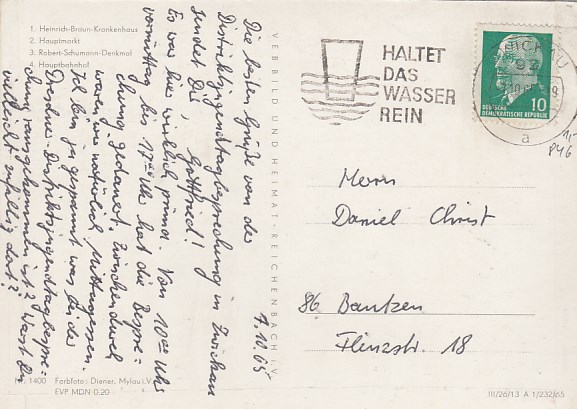 1. Heinrich-Braun-Krankenhaus
2. Hauptmarkt
3. Robert-Schumann-Denkmal
4. Hauptbahnhof
Die besten Grüße von der
Distriktsjugendtagbesprechung in Zwickau
sendet Dir, Gottfried!
Es war hier wirklich prima. Von 10⁰⁰ Uhr
vormittag bis 17⁰⁰ Uhr hat die Bespre-
chung gedauert, zwischendurch
waren wir natürlich Mittagessen.
Ich bin ja gespannt was bei der
Dresdner-Distriktsjugendtagbespre-
chung rausgekommen ist? Warst Du
vielleicht zufällig dort?
7.10.65
VEB BILD UND HEIMAT · REICHENBACH I. V.
HALTET
DAS
WASSER
REIN
ZWICKAU
a
DEUTSCHE
DEMOKRATISCHE REPUBLIK
10
1,-
P46
Herrn
Daniel Christ
86 Bautzen
Flinzstr. 18
Nr. 1400 Farbfoto: Diener, Mylau i. V.
EVP MDN 0.20
III/26/13 A 1/232/65